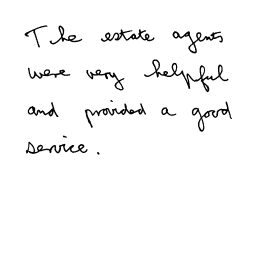 The estate agents
were very helpful
and provided a good
service.